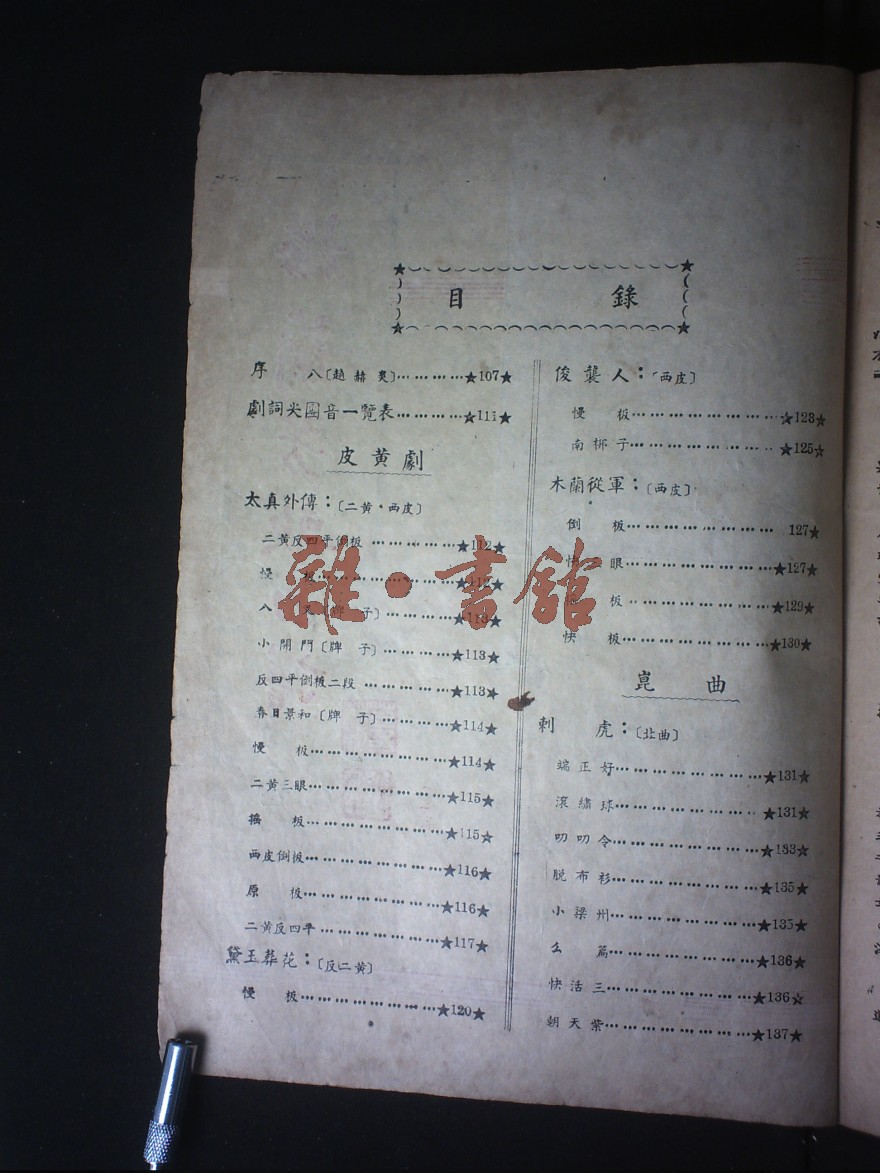 目 錄
序 八〔趙赫爽〕…………★107★
劇詞尖團音一覽表…………★111★
皮黃劇
太真外傳：〔二黃·西皮〕
二黃反四平倒板………………★112★
慢 板………………★112★
八 〔牌 子〕…………★113★
小開門〔牌 子〕…………★113★
反四平倒板二段………………★113★
春日景和〔牌 子〕…………★114★
慢 板………………★114★
二黃三眼………………★115★
搖 板………………★115★
西皮倒板………………★116★
原 板………………★116★
二黃反四平………………★117★
黛玉葬花：〔反二黃〕
慢 板………………★120★
俊襲人：〔西皮〕
慢 板………………★123★
南梆子………………★125★
木蘭從軍：〔西皮〕
倒 板………………127★
快 眼………………★127★
慢 板………………★129★
快 板………………★130★
崑 曲
刺 虎：〔北曲〕
端正好………………★131★
滾繡球………………★131★
叨叨令………………★133★
脫布衫………………★135★
小梁州………………★135★
么 篇………………★136★
快活三………………★136★
朝天紫………………★137★
雜·書館